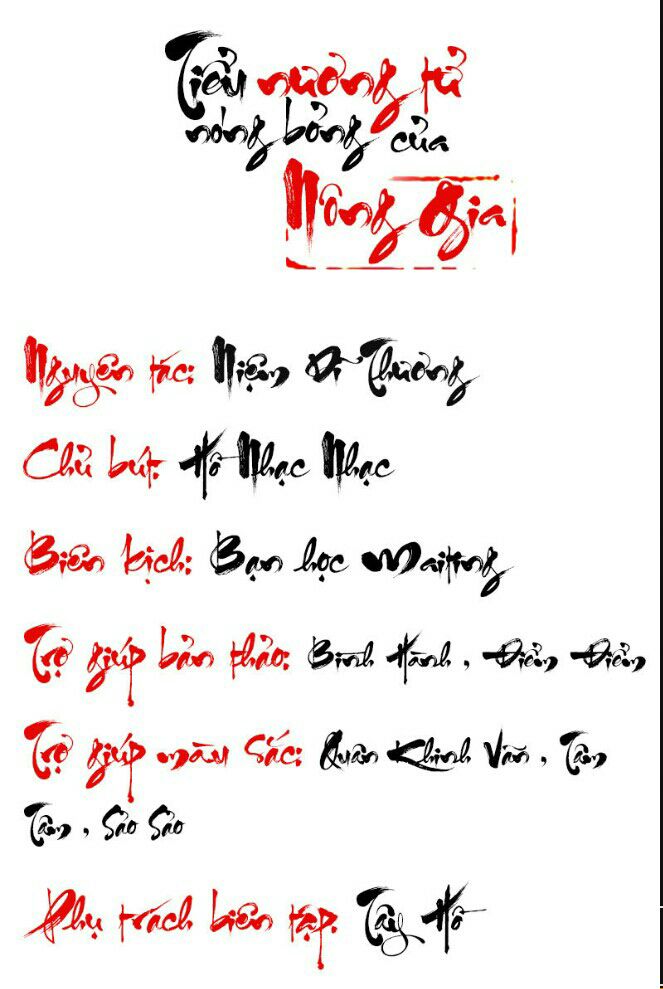 Tiểu nương tử
nóng bỏng của
Nông Gia
Nguyên tác: Niệm Dĩ Thương
Chủ bút: Hồ Nhạc Nhạc
Biên kịch: Bạn học Maiting
Trợ giúp bản thảo: Bình Hành, Điểm Điểm
Trợ giúp màu sắc: Quân Khinh Vãn, Tâm
Tâm, Sảo Sảo
Phụ trách biên tập: Tây Hồ